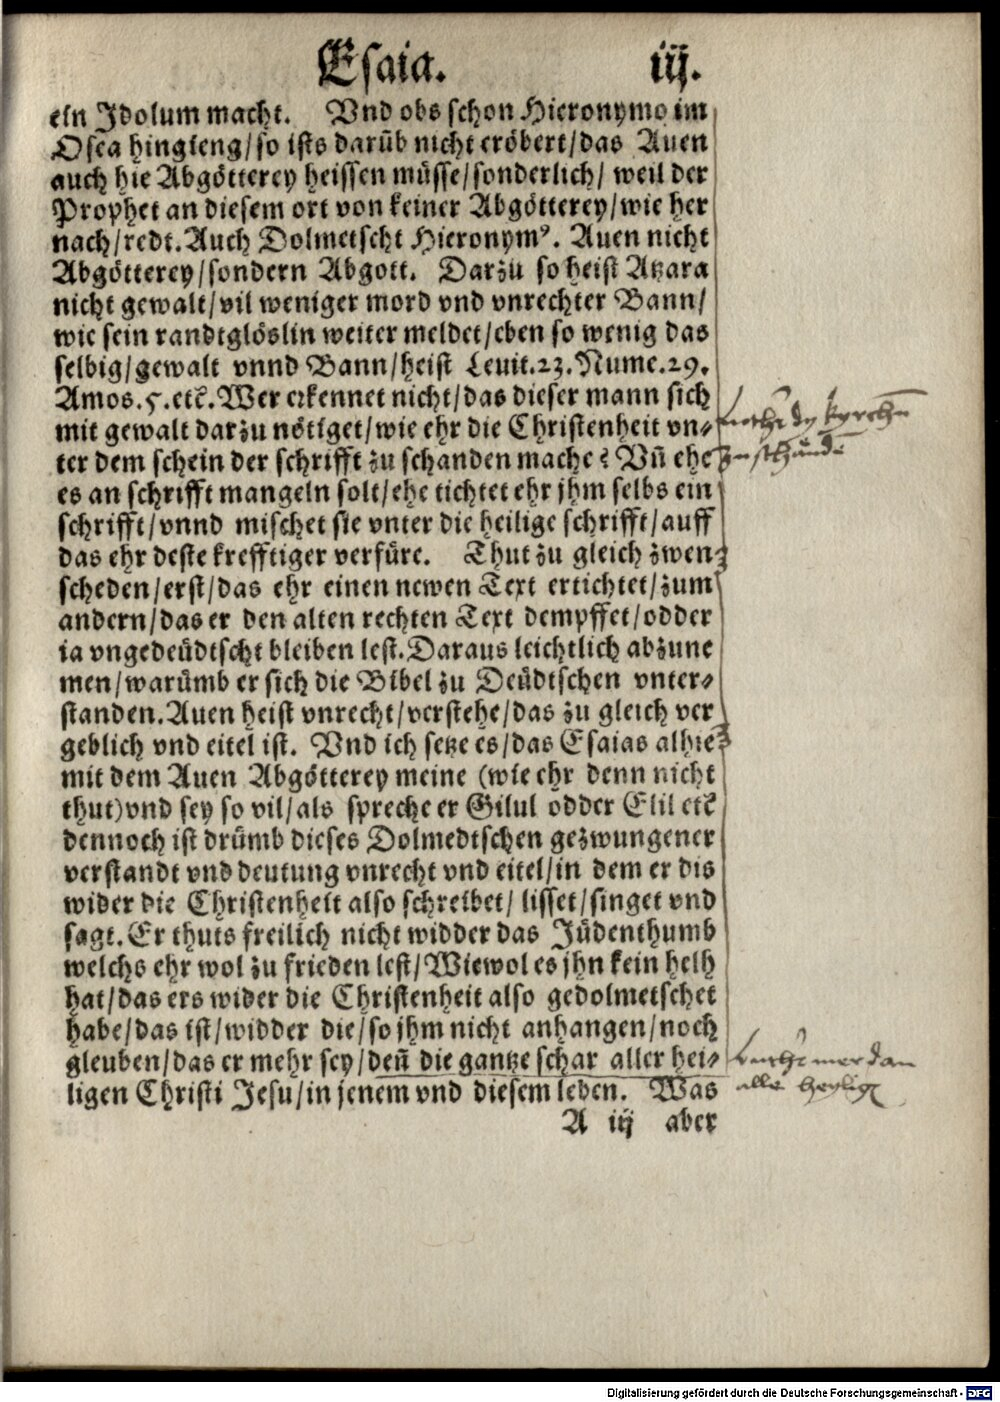 Esaia. iij.
ein Idolum macht. Vnd obs schon Hieronymo im
Osea hingieng/so ists darüb nicht eröbert/das Auen
auch hie Abgötterey heissen müsse/sonderlich/ weil der
Prophet an diesem ort von keiner Abgötterey/wie her
nach/redt. Auch Dolmetscht Hieronymꝰ. Auen nicht
Abgötterey/sondern Abgott. Darzu so heist Atzara
nicht gewalt/vil weniger mord vnd vnrechter Bann/
wie sein randtglöslin weiter meldet/eben so wenig das
selbig/gewalt vnnd Bann/heist Leuit.23.Nume.29.
Amos.5.etc̃. Wer erkennet nicht/das dieser mann sich
mit gewalt darzu nötiget/wie ehr die Christenheit vn-
ter dem schein der schrifft zu schanden mache? Vñ ehe
es an schrifft mangeln solt/ehe tichtet ehr jhm selbs ein
schrifft/vnnd mischet sie vnter die heilige schrifft/auff
das ehr deste krefftiger verfüre. Thut zu gleich zwen
scheden/erst/das ehr einen newen Text ertichtet/zum
andern/das er den alten rechten Text dempffet/odder
ia vngedeüdtscht bleiben lest. Daraus leichtlich abzune
men/warümb er sich die Bibel zu Deüdtschen vnter-
standen. Auen heist vnrecht/verstehe/das zu gleich ver
geblich vnd eitel ist. Vnd ich setze es/das Esaias alhie
mit dem Auen Abgötterey meine (wie ehr denn nicht
thut) vnd sey so vil/als spreche er Gilul odder Elil etc̃
dennoch ist drümb dieses Dolmedtschen gezwungener
verstandt vnd deutung vnrecht vnd eitel/in dem er dis
wider die Christenheit also schreibet/ lisset/singet vnd
sagt. Er thuts freilich nicht widder das Jüdenthumb
welchs ehr wol zu frieden lest/Wiewol es jhn kein helh
hat/das ers wider die Christenheit also gedolmetschet
habe/das ist/widder die/so jhm nicht anhangen/noch
gleuben/das er mehr sey/deñ die gantze schar aller hei-
ligen Christi Jesu/in jenem vnd diesem leben. Was
A iij aber
mer dan
alle heylig
Digitalisierung gefördert durch die Deutsche Forschungsgemeinschaft - DFG